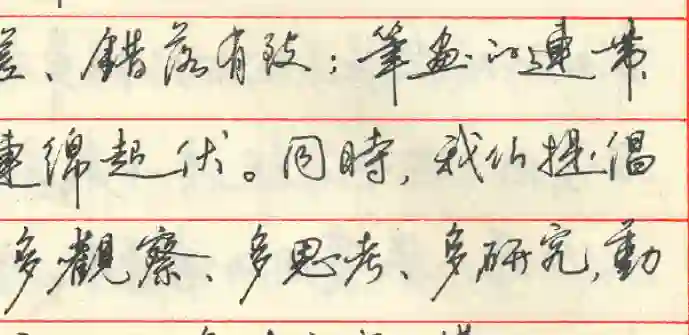 差、錯落有致；筆畫的連帶
連綿起伏。同時，我们提倡
多觀察、多思考、多研究，動